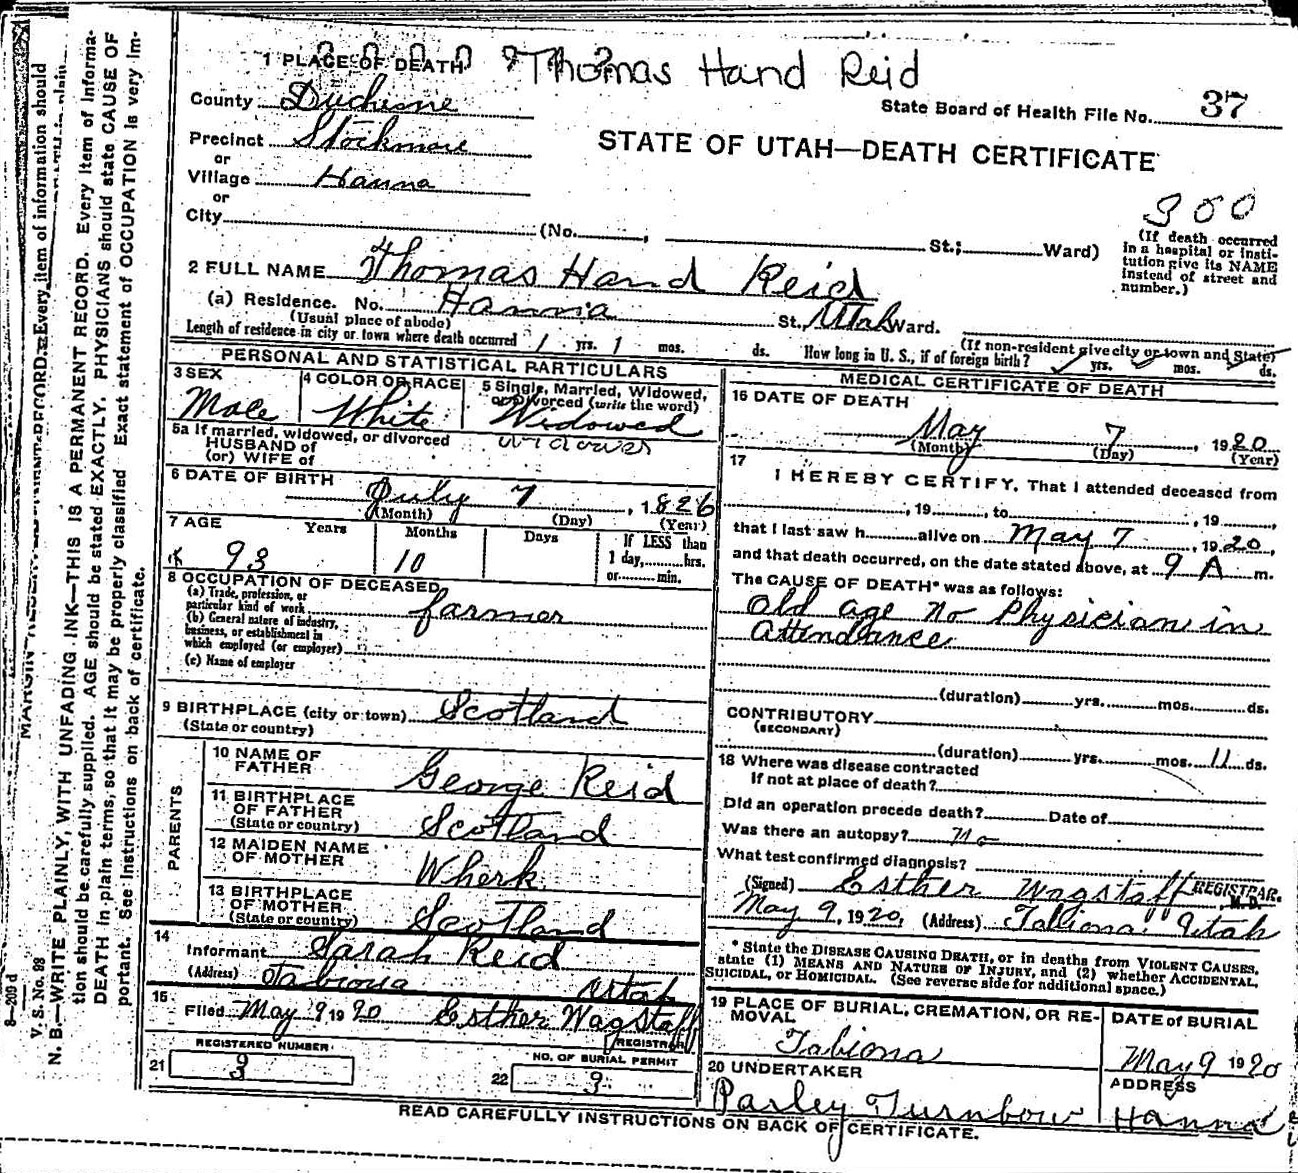 1 PLACE OF DEATH
Thomas Hand Reid
County Duchesne
State Board of Health File No. 37
Precinct Stockmore
or
STATE OF UTAH—DEATH CERTIFICATE
Village Hanna
or
City (No. , St.; Ward)
300
(If death occurred
in a hospital or insti-
tution give its NAME
instead of street and
number.)
2 FULL NAME Thomas Hand Reid
(a) Residence. No. Hannia St., Utah Ward.
(Usual place of abode)
(If non-resident give city or town and State)
Length of residence in city or town where death occurred 1 yrs. 1 mos. ds. How long in U. S., if of foreign birth? yrs. mos. ds.
PERSONAL AND STATISTICAL PARTICULARS
3 SEX
Male
4 COLOR OR RACE
White
5 Single, Married, Widowed,
or Divorced (write the word)
Widowed
5a If married, widowed, or divorced
HUSBAND of
(or) WIFE of
widower
6 DATE OF BIRTH
July 7, 1826
(Month) (Day) (Year)
7 AGE Years Months Days
If LESS than
1 day, hrs.
or min.
93 10
8 OCCUPATION OF DECEASED
(a) Trade, profession, or
particular kind of work farmer
(b) General nature of industry,
business, or establishment in
which employed (or employer)
(c) Name of employer
9 BIRTHPLACE (city or town) Scotland
(State or country)
PARENTS
10 NAME OF
FATHER George Reid
11 BIRTHPLACE
OF FATHER
(State or country) Scotland
12 MAIDEN NAME
OF MOTHER Wherk
13 BIRTHPLACE
OF MOTHER
(State or country) Scotland
14
Informant Sarah Reid
(Address) Tabiona Utah
15
Filed May 9 1920 Esther Wagstaff
REGISTRAR
REGISTERED NUMBER
21 3
NO. OF BURIAL PERMIT
22 3
MEDICAL CERTIFICATE OF DEATH
16 DATE OF DEATH
May 7, 1920
(Month) (Day) (Year)
17
I HEREBY CERTIFY, That I attended deceased from
, 19 , to , 19 ,
that I last saw h alive on May 7, 1920,
and that death occurred, on the date stated above, at 9 A m.
The CAUSE OF DEATH* was as follows:
Old age no Physician in
Attendance
(duration) yrs. mos. ds.
CONTRIBUTORY
(SECONDARY)
(duration) yrs. mos. 11 ds.
18 Where was disease contracted
if not at place of death?
Did an operation precede death? Date of
Was there an autopsy? no
What test confirmed diagnosis?
(Signed) Esther Wagstaff REGISTRAR.
M.D.
May 9, 1920, (Address) Tabiona, Utah
* State the DISEASE CAUSING DEATH, or in deaths from VIOLENT CAUSES,
state (1) MEANS AND NATURE OF INJURY, and (2) whether ACCIDENTAL,
SUICIDAL, or HOMICIDAL. (See reverse side for additional space.)
19 PLACE OF BURIAL, CREMATION, OR RE-
MOVAL
Tabiona
DATE of BURIAL
May 9 1920
20 UNDERTAKER
Parley Turnbow
ADDRESS
Hanna
READ CAREFULLY INSTRUCTIONS ON BACK OF CERTIFICATE.
8—200 d
V. S. No. 98
N. B.—WRITE PLAINLY, WITH UNFADING INK—THIS IS A PERMANENT RECORD. Every item of informa-
tion should be carefully supplied. AGE should be stated EXACTLY. PHYSICIANS should state CAUSE OF
DEATH in plain terms, so that it may be properly classified. Exact statement of OCCUPATION is very im-
portant. See instructions on back of certificate.